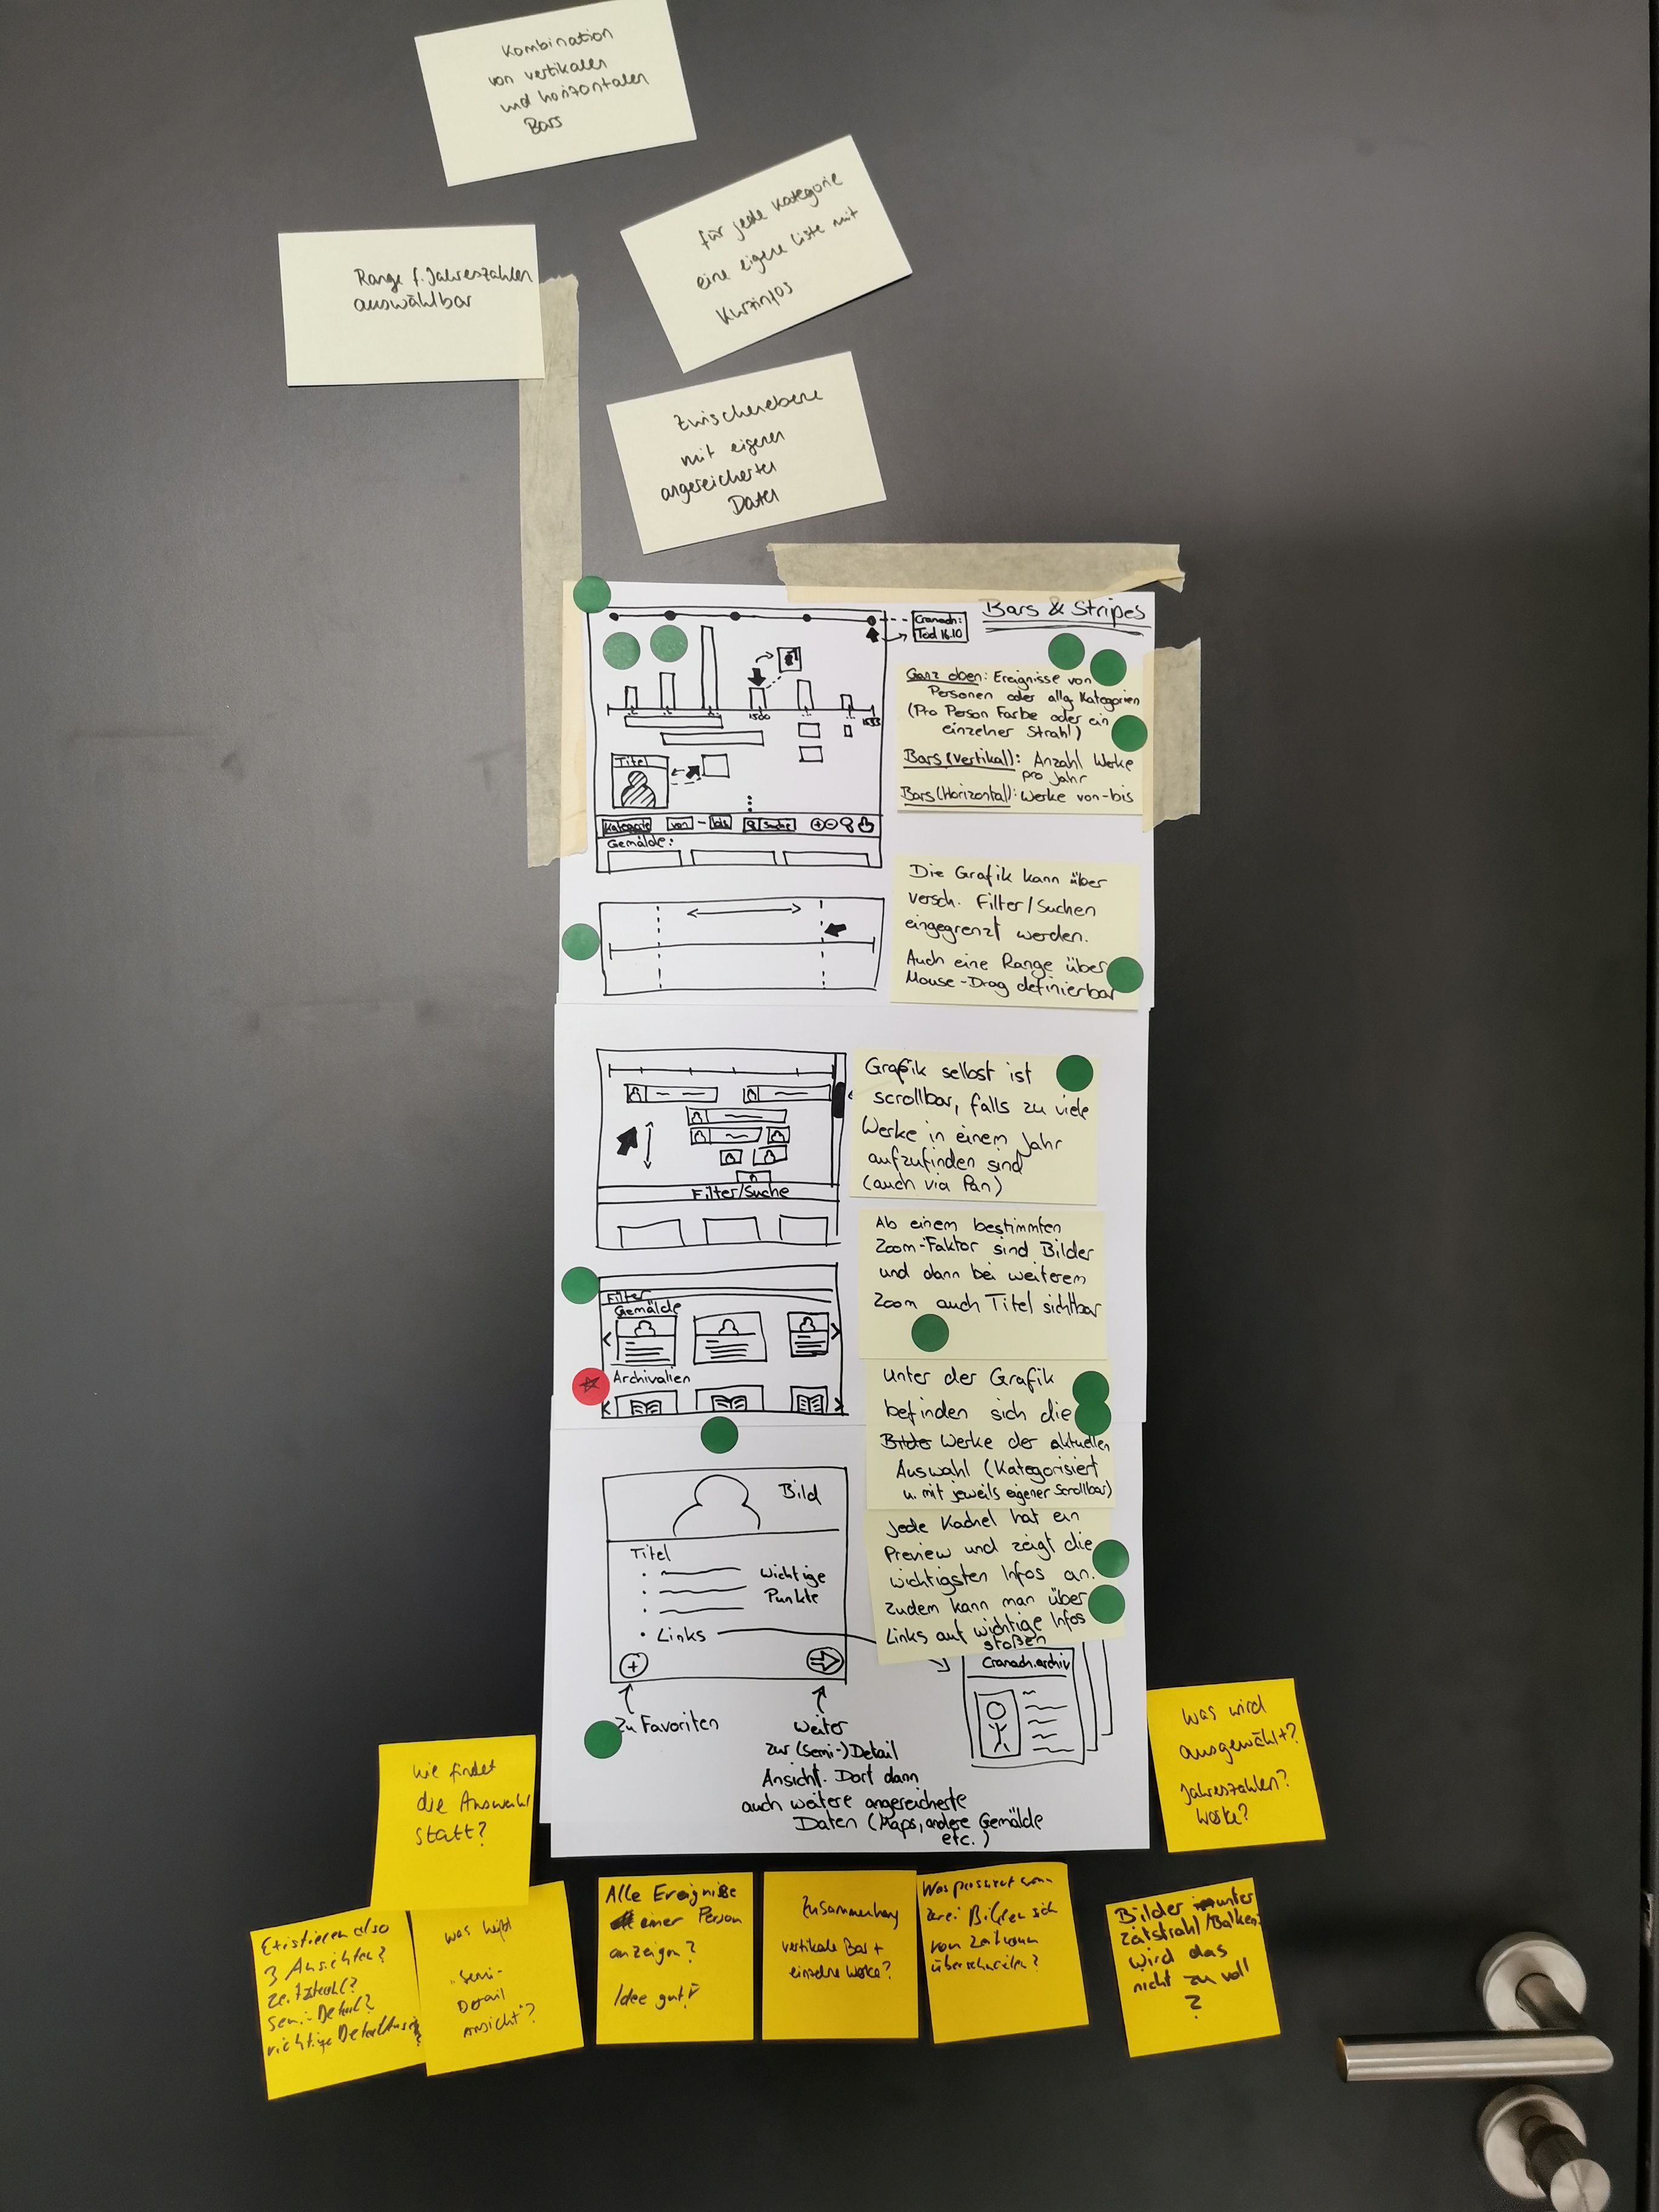 Kombination
von vertikalen
und horizontalen
Bars
für jede Kategorie
eine eigene Liste mit
Kurzinfos
Range f. Jahreszahlen
auswählbar
Zwischenebene
mit eigenen
angereicherten
Daten
Bars & Stripes
Cranach:
Tod 16.10
1500
Titel
Kategorie von - bis Suche
Gemälde:
Ganz oben: Ereignisse von
Personen oder allg. Kategorien
(Pro Person Farbe oder ein
einzelner Strahl)
Bars (Vertikal): Anzahl Werke
pro Jahr
Bars (Horizontal): Werke von-bis
Die Grafik kann über
versch. Filter/Suchen
eingegrenzt werden.
Auch eine Range über
Mouse-Drag definierbar
Filter/Suche
Grafik selbst ist
scrollbar, falls zu viele
Werke in einem Jahr
aufzufinden sind
(auch via Pan)
Ab einem bestimmten
Zoom-Faktor sind Bilder
und dann bei weiterem
Zoom auch Titel sichtbar
Filter
Gemälde
Archivalien
Unter der Grafik
befinden sich die
Bilder Werke der aktuellen
Auswahl (Kategorisiert
u. mit jeweils eigener Scrollbar)
Jede Kachel hat ein
Preview und zeigt die
wichtigsten Infos an.
Zudem kann man über
Links auf wichtige Infos
stoßen
Bild
Titel
Wichtige
Punkte
Links
Cranach.archiv
Zu Favoriten
Weiter
zur (Semi-)Detail
Ansicht. Dort dann
auch weitere angereicherte
Daten (Maps, andere Gemälde
etc.)
Was wird
ausgewählt?
Jahreszahlen?
Werke?
Wie findet
die Auswahl
statt?
Existieren also
3 Ansichten?
Zeitstrahl?
Semi-Detail?
richtige Detailansicht?
was heißt
"Semi-
Detail
Ansicht"?
Alle Ereignisse
einer Person
anzeigen?
Idee gut!
Zusammenhang
vertikale Bar +
einzelne Werke?
Was passiert wenn
zwei Bilder sich
vom Zeitraum
überschneiden?
Bilder unter
Zeitstrahl/Balken?
wird das
nicht zu voll
?